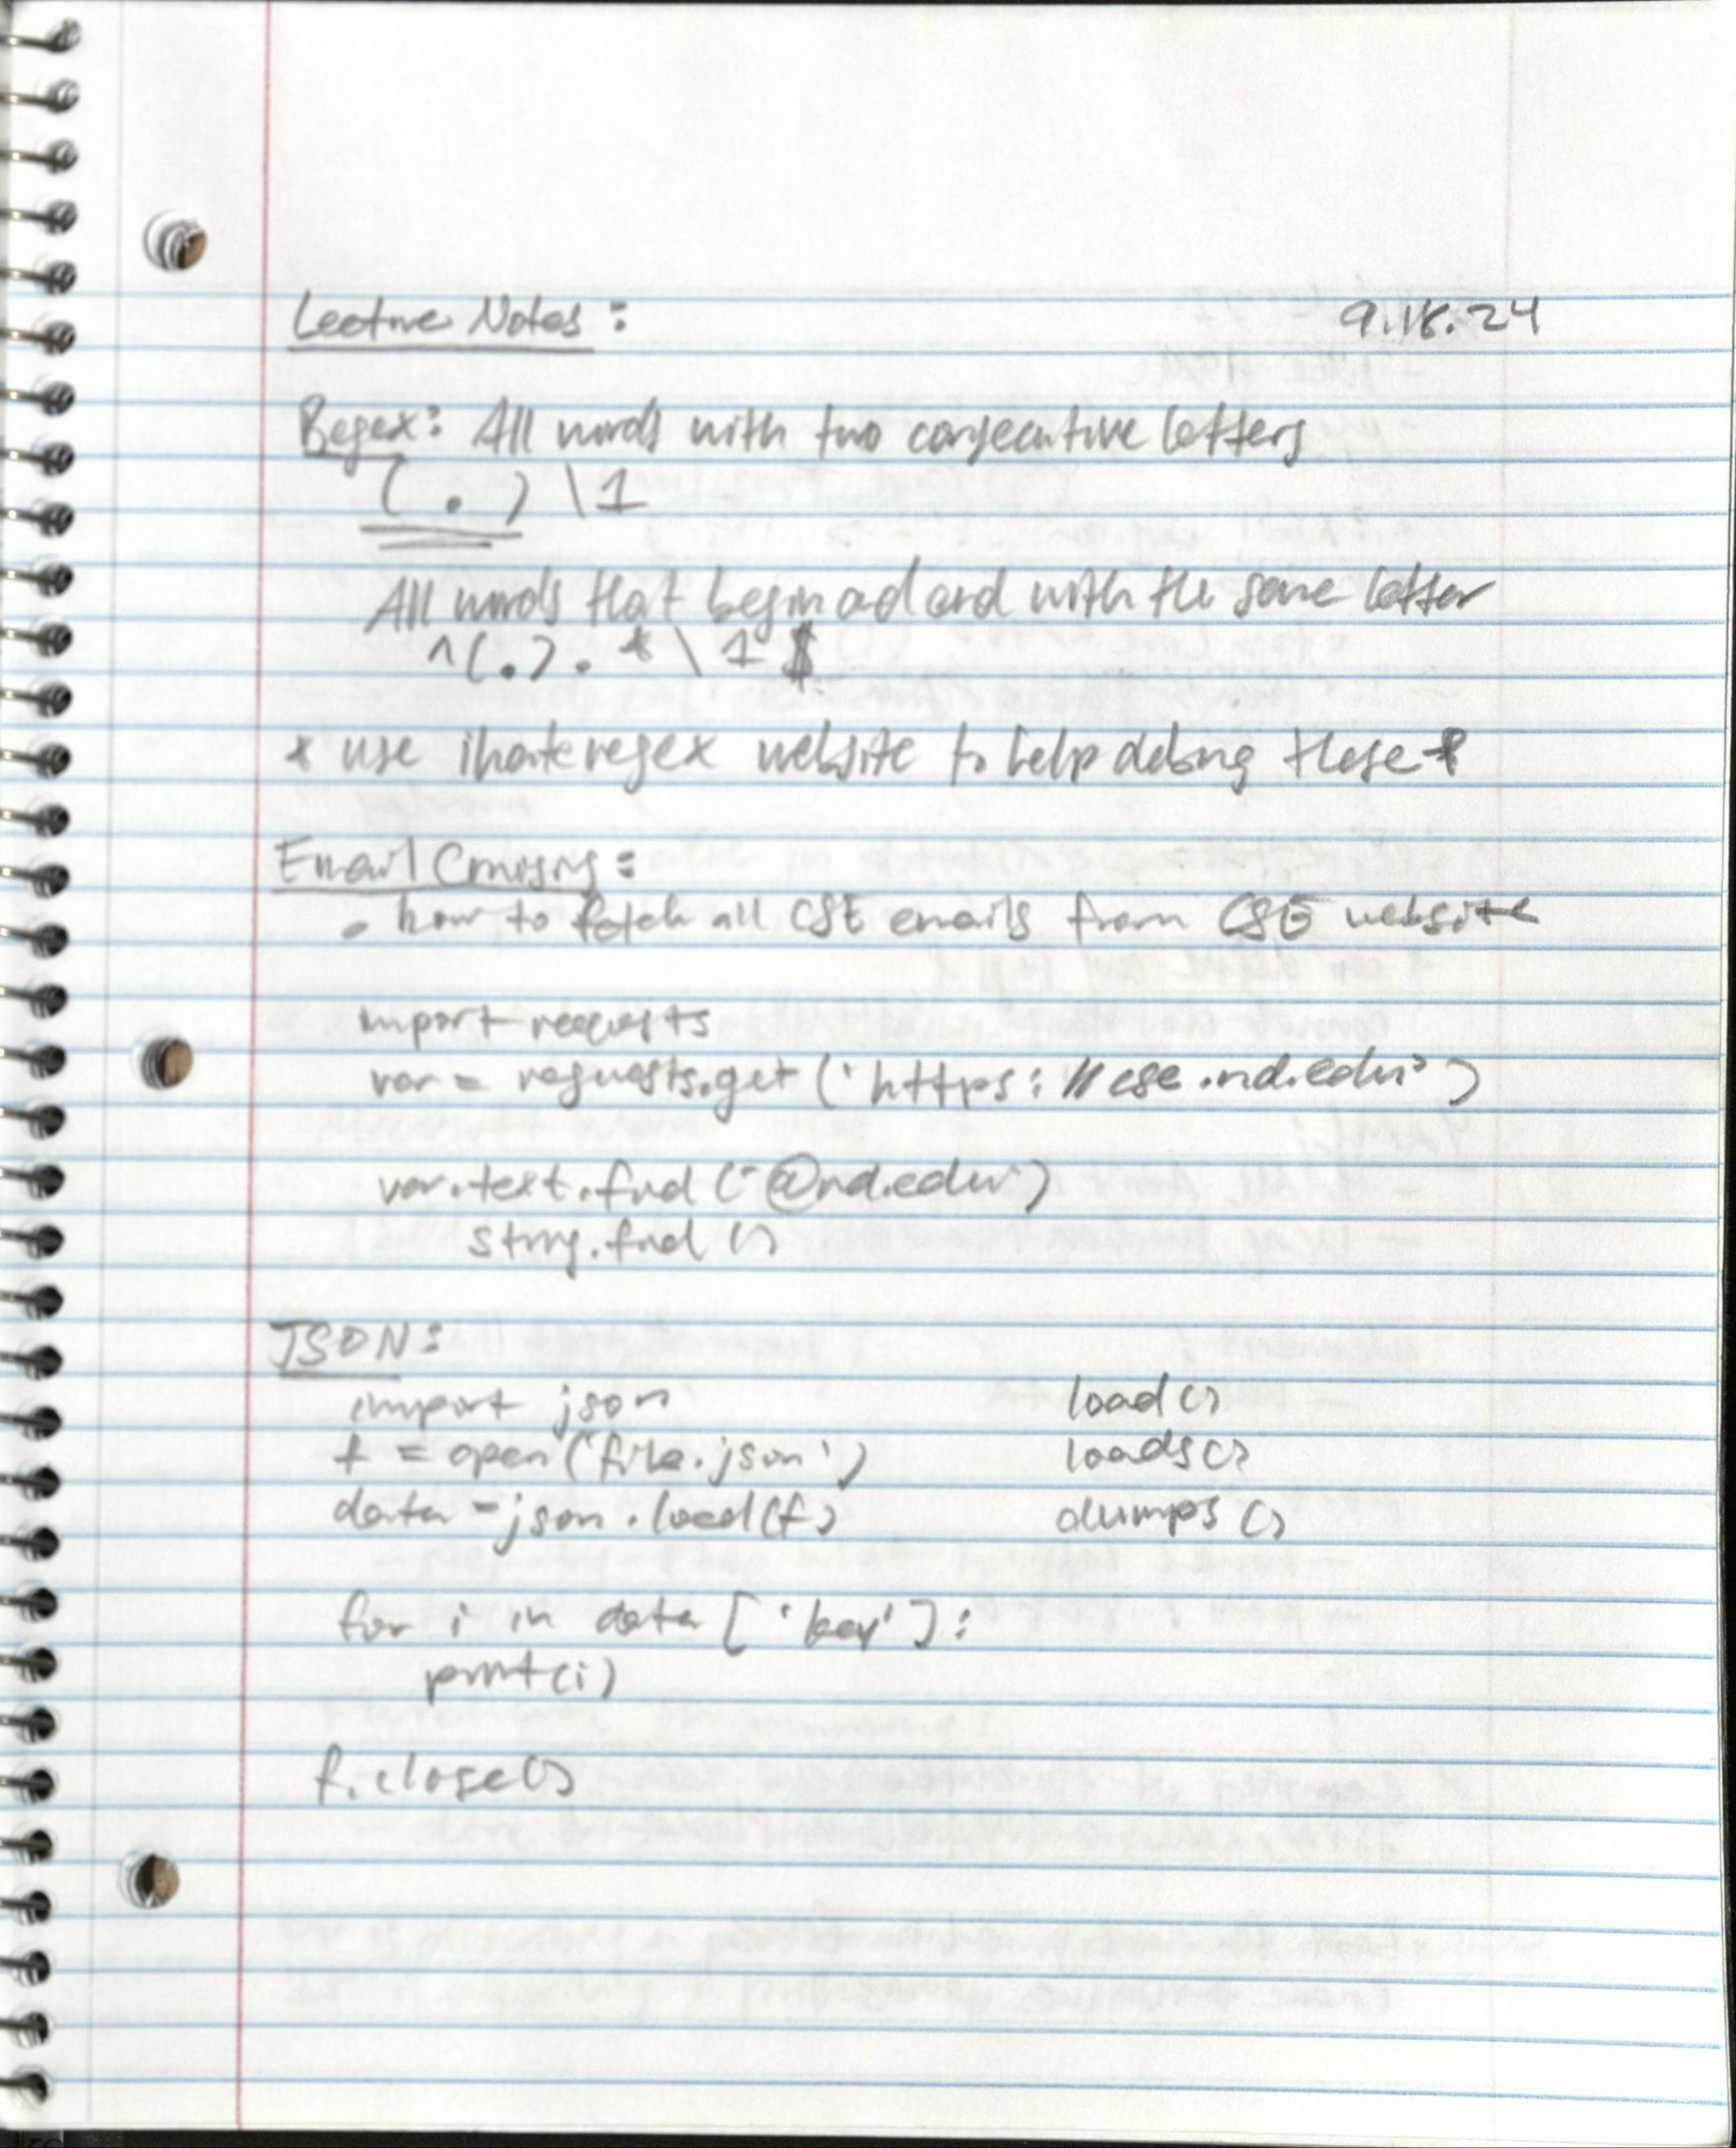 Lecture Notes: 9.18.24
Regex: All words with two consecutive letters
(.)\1
All words that begin and end with the same letter
^(.).*\1$
* use ihateregex website to help debug these *
Email
• how to fetch all CSE emails from CSE website
import requests
var = requests.get('https://cse.nd.edu')
var.text.find('@nd.edu')
string.find()
JSON:
import json load()
f = open('file.json') loads()
data = json.load(f) dumps()
for i in data['key']:
print(i)
f.close()